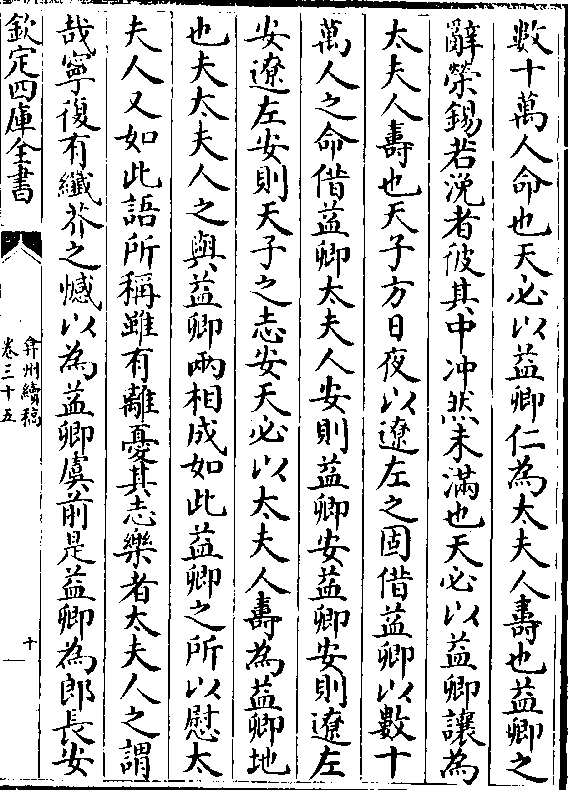 數十萬人命也天必以益卿仁為太夫人壽也益卿之
辭榮錫若浼者彼其中冲然未滿也天必以益卿讓為
太夫人壽也天子方日夜以遼左之固借益卿以數十
萬人之命借益卿太夫人安則益卿安益卿安則遼左
安遼左安則天子之志安天必以太夫人壽為益卿地
也夫太夫人之與益卿兩相成如此益卿之所以慰太
夫人又如此語所稱雖有離憂其志樂者太夫人之謂
哉寧復有纖芥之憾以為益卿虞前是益卿為郎長安
欽定四庫全書
弇州續稿
卷三十五
十